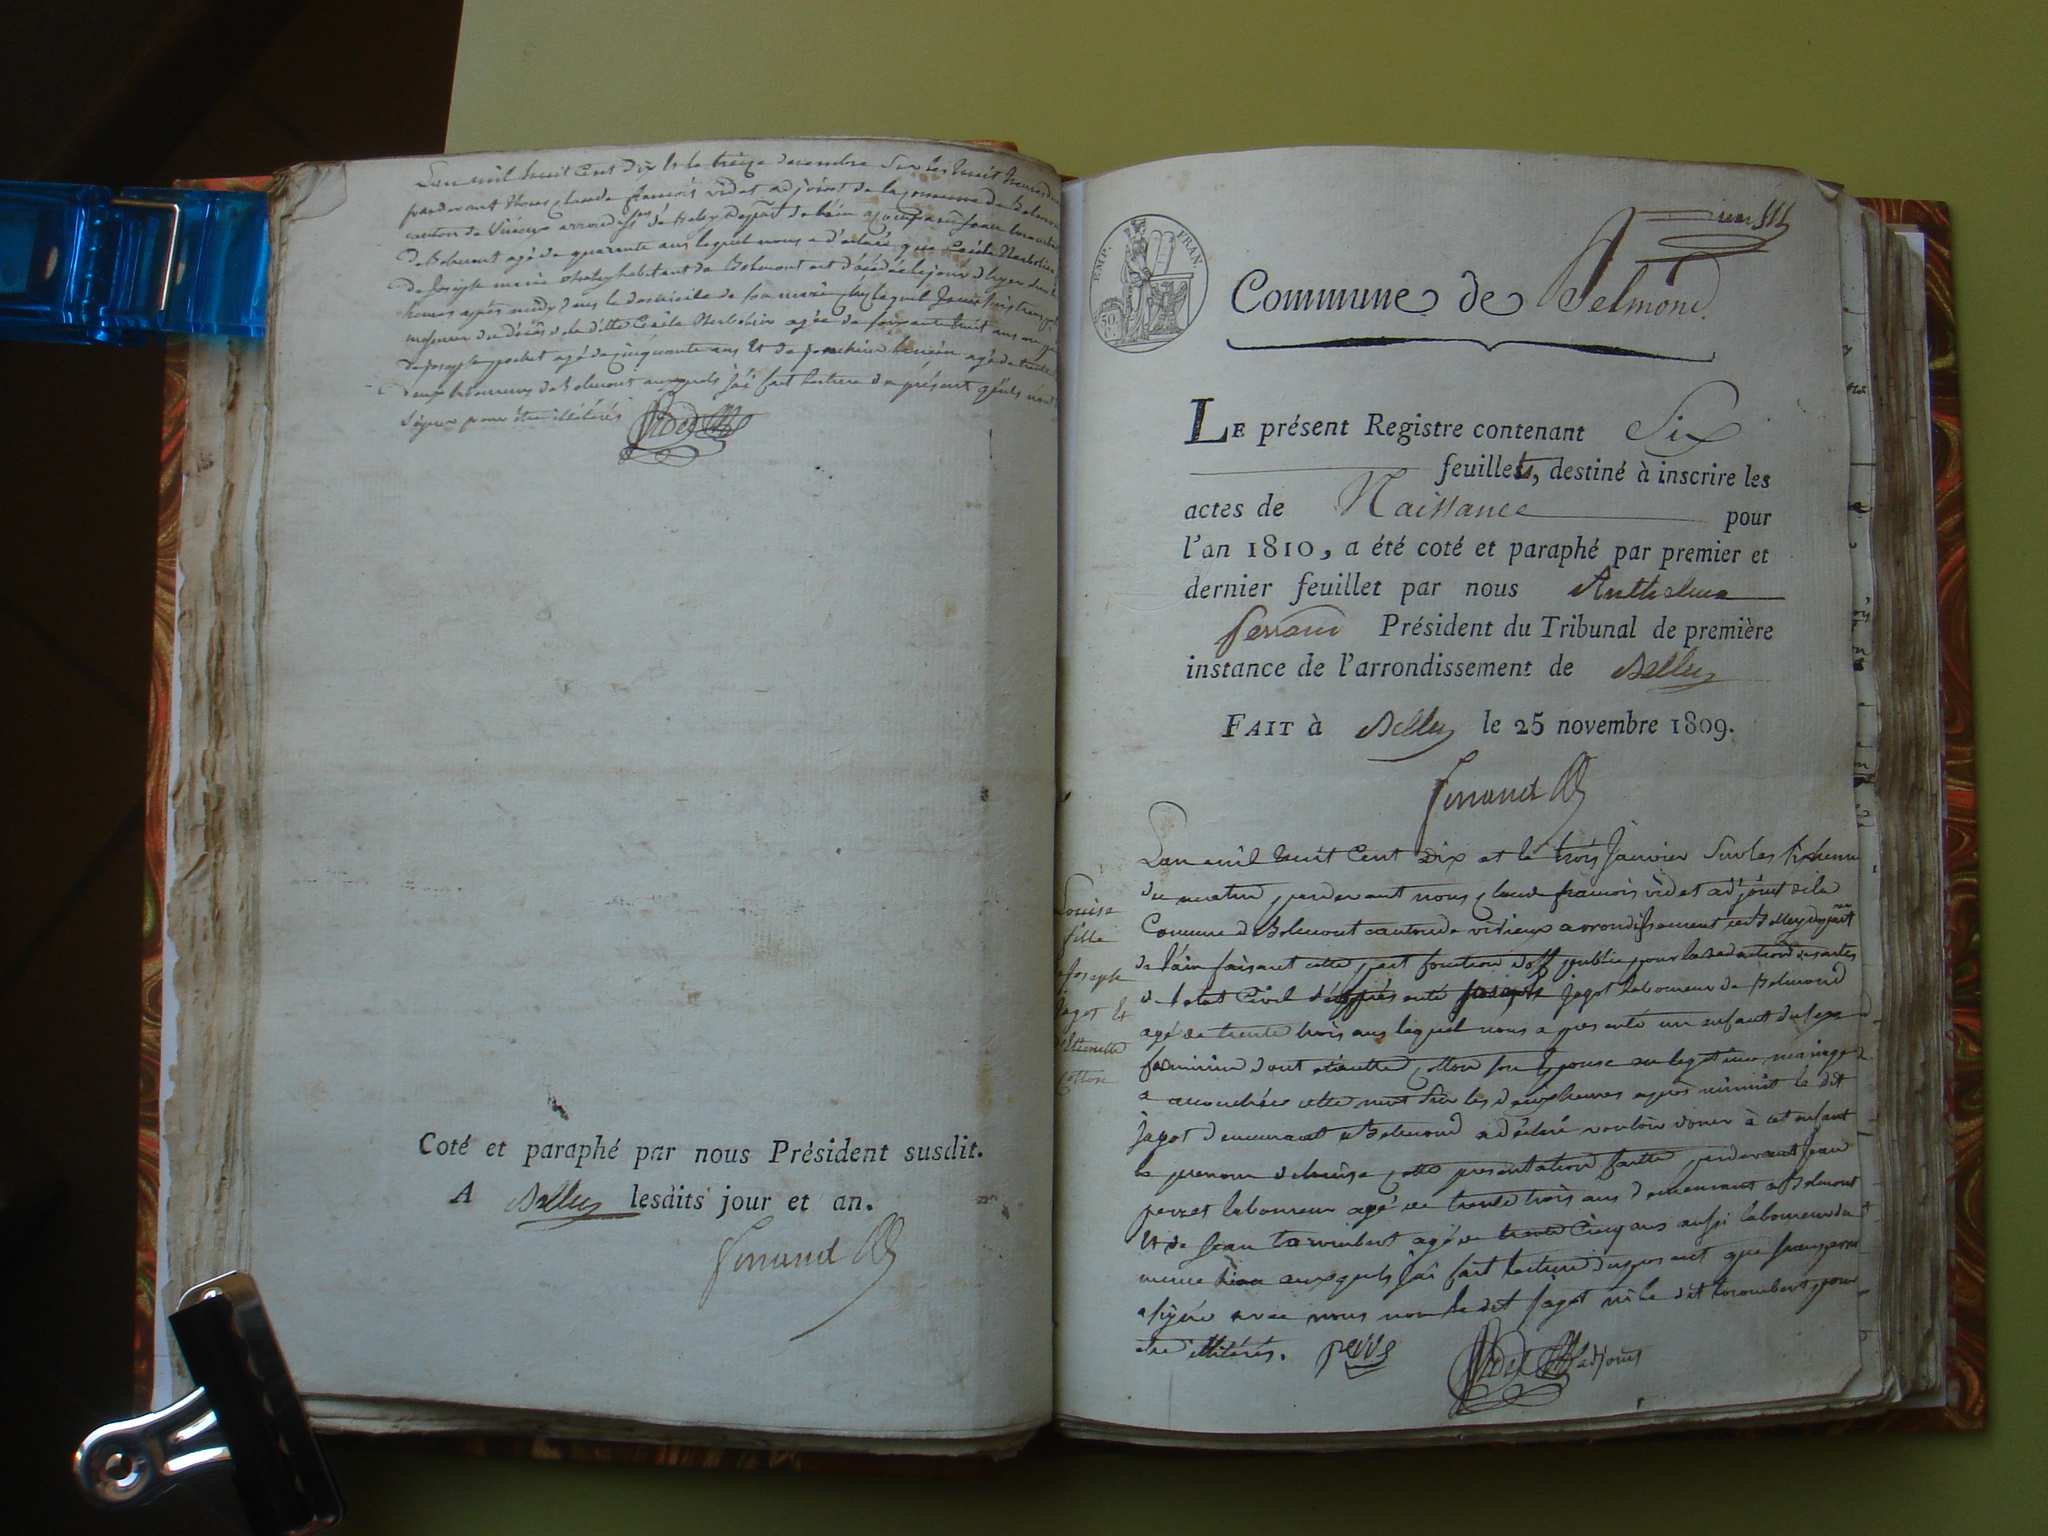 L'an mil huit Cent Dix & le treize decembre Sur les huit heures du
pardevant Nous claude francois videt adjoint de la commune de Belmont
canton de Virieux arrondisst de Belley Depart de lain
de Belmont agé de quarante ans lequel nous a d'eclaré que Cécile
de Joseph habitant de Belmont est décédée le jour d'hyer
heures après midy dans le domicile de son mari
du décès de la ditte Cécile agée de soixante huit ans
de Joseph pochet agé de cinquante ans Et de agé de trente
de Belmont auxquels j'ai fait lecture du présent qu'ils n'ont
Signer pour être illitérés
Videt
Coté et paraphé par nous Président susdit.
A Belley lesdits jour et an.
ferrand
EMP. FRAN.
50 C.
Commune de Belmond
LE présent Registre contenant Six
feuillets, destiné à inscrire les
actes de Naissance pour
l'an 1810, a été coté et paraphé par premier et
dernier feuillet par nous Anthelme
ferrand Président du Tribunal de première
instance de l'arrondissement de Belley
FAIT à Belley le 25 novembre 1809.
ferrand
Louise
fille
Joseph
Jagot &
Etiennette
Cotton
L'an mil huit Cent dix et le trois Janvier Sur les six heures
du matin, pardevant nous claude francois videt adjoint de la
Commune de Belmont canton de virieux arrondissement de Belley depart
de l'ain faisant cette part fonction d'off public pour la redaction des actes
de l'etat Civil s'est présenté joseph Jagot laboureur de Belmond
agé de trente trois ans lequel nous a presenté un enfant du sexe
feminin dont etiennette cotton son Epouse en legitime mariage
a accouchée cette nuit sur les deux heures après minuit le dit
jagot demeurant a Belmond a déclaré vouloir doner à cet enfant
le prenom de louise cette presentation faitte pardevant Jean
perret laboureur agé de trente trois ans demeurant a Belmont
Et de Jean trombert agé de trente Cinq ans aussi laboureur du
meme lieu auxquels j'ai fait lecture du present que jean perret
a signé avec nous non le dit jagot ni le dit trombert pour
etre illitérés. perre
Videt adjoint